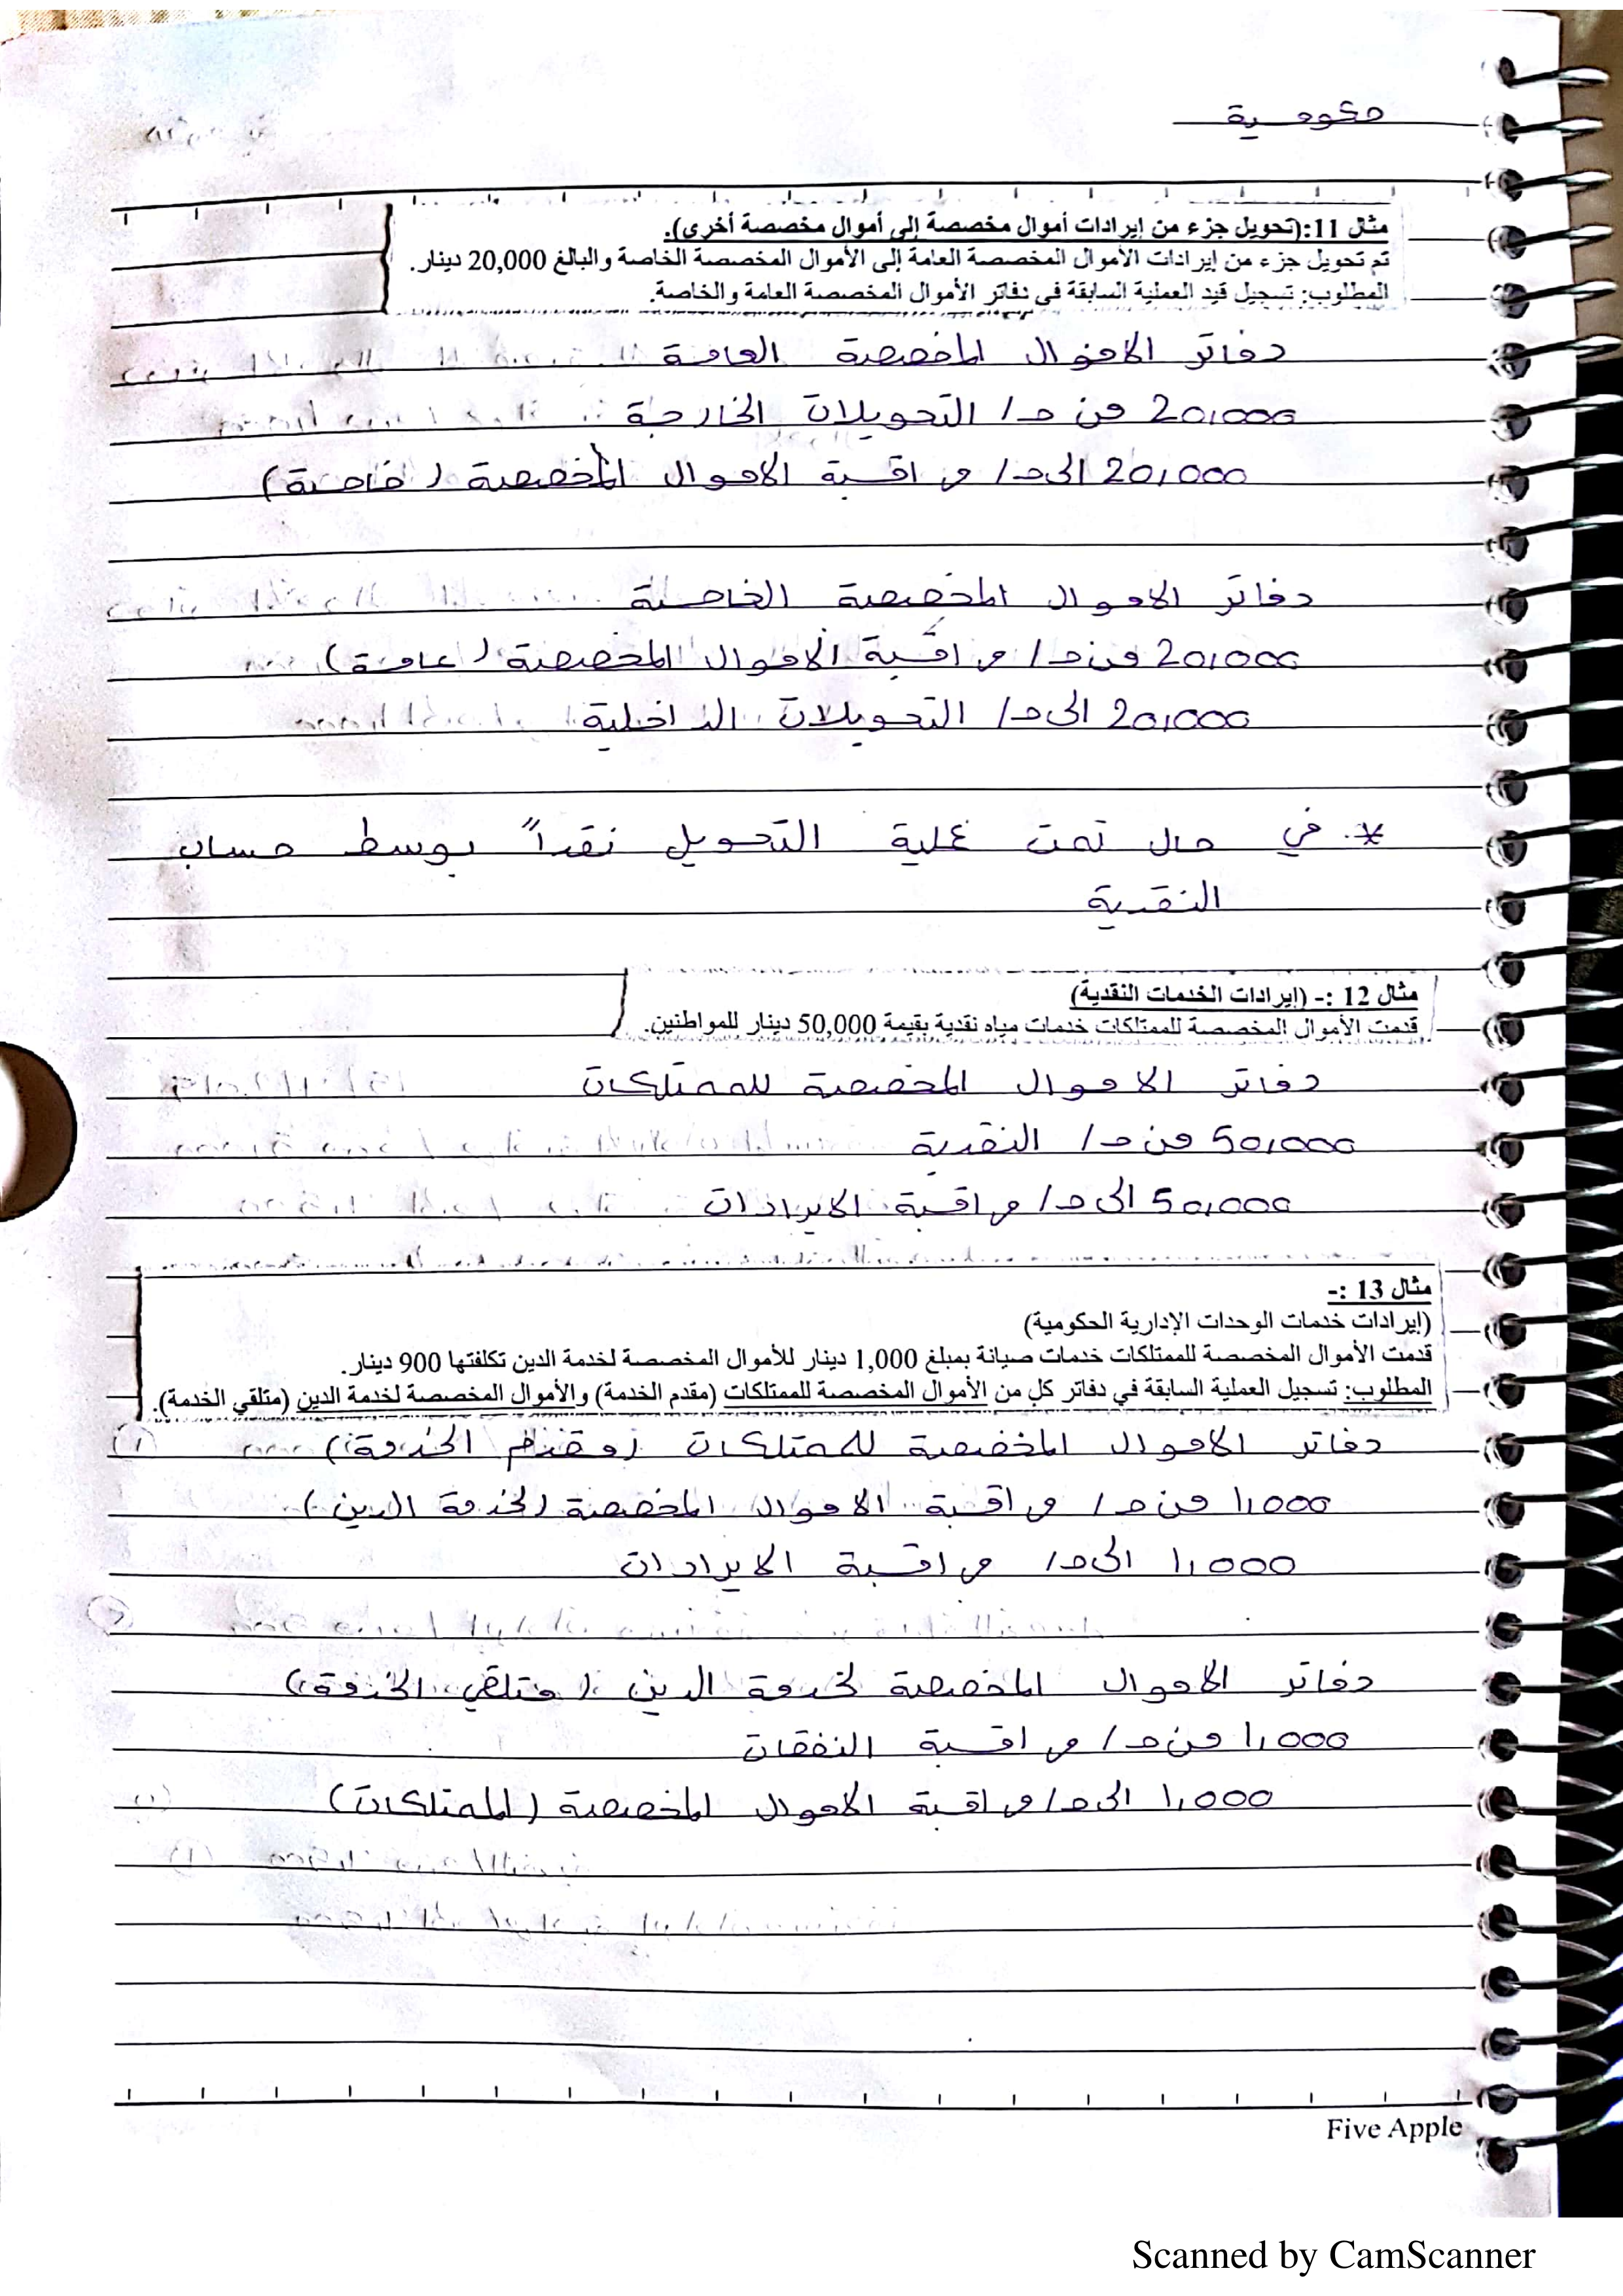 حكومية
مثال 11:(تحويل جزء من إيرادات أموال مخصصة إلى أموال مخصصة أخرى).
تم تحويل جزء من إيرادات الأموال المخصصة العامة إلى الأموال المخصصة الخاصة والبالغ 20,000 دينار.
المطلوب: تسجيل قيد العملية السابقة في دفاتر الأموال المخصصة العامة والخاصة.
دفاتر الاموال المخصصة العامة
20,000 من حـ/ التحويلات الخارجة
20,000 الى حـ/ مراقبة الاموال المخصصة (خاصة)
دفاتر الاموال المخصصة الخاصة
20,000 من حـ/ مراقبة الاموال المخصصة (عامة)
20,000 الى حـ/ التحويلات الداخلية
* في حال تمت عملية التحويل نقداً بوسط حساب
النقدية
مثال 12 :- (إيرادات الخدمات النقدية)
قدمت الأموال المخصصة للممتلكات خدمات مياه نقدية بقيمة 50,000 دينار للمواطنين.
دفاتر الاموال المخصصة للممتلكات
50,000 من حـ/ النقدية
50,000 الى حـ/ مراقبة الايرادات
مثال 13 :-
(إيرادات خدمات الوحدات الإدارية الحكومية)
قدمت الأموال المخصصة للممتلكات خدمات صيانة بمبلغ 1,000 دينار للأموال المخصصة لخدمة الدين تكلفتها 900 دينار.
المطلوب: تسجيل العملية السابقة في دفاتر كل من الأموال المخصصة للممتلكات (مقدم الخدمة) والأموال المخصصة لخدمة الدين (متلقي الخدمة).
دفاتر الاموال المخصصة للممتلكات (مقدم الخدمة)
1,000 من حـ/ مراقبة الاموال المخصصة (لخدمة الدين)
1,000 الى حـ/ مراقبة الايرادات
دفاتر الاموال المخصصة لخدمة الدين (متلقي الخدمة)
1,000 من حـ/ مراقبة النفقات
1,000 الى حـ/ مراقبة الاموال المخصصة (للممتلكات)
Five Apple
Scanned by CamScanner